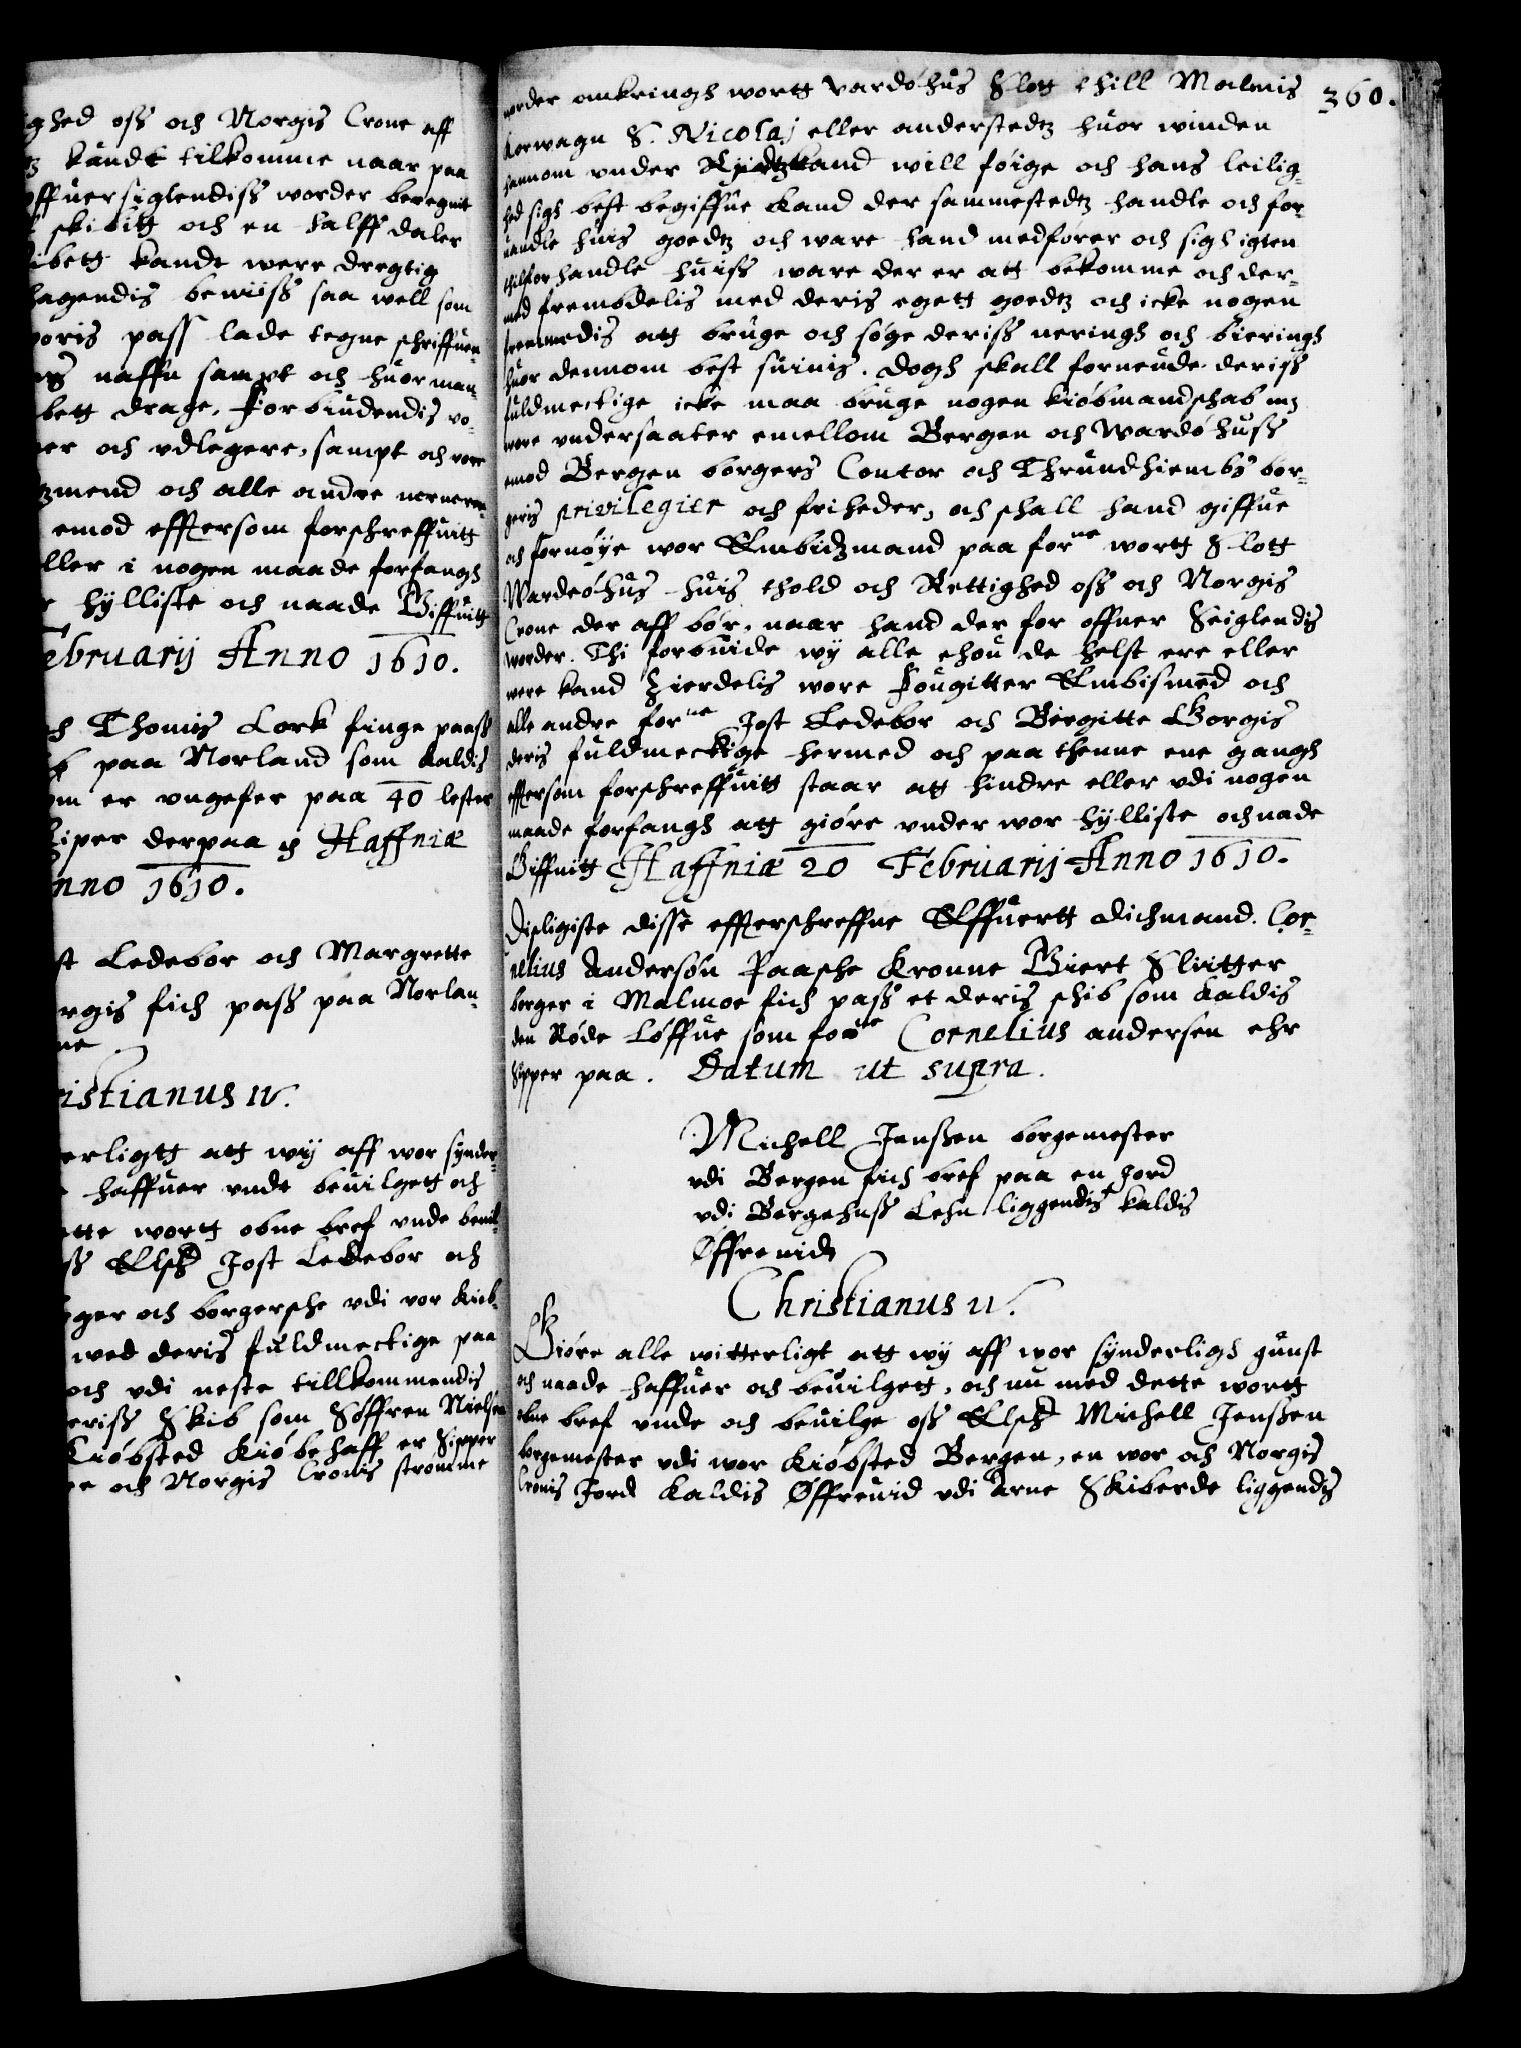 ghed oss och Norgis Crone aff
kandt tilkomme naar paa
offuersiglendiss worder beregnit
skibitt och en halff daler
ibett kandt were dregtig
hagendis beuiiss saa well som
woris pass lade tegne schriffuer
naffn sampt och huor man-
bett drage, Forbiudendis wo-
er och vdlegere, sampt och wore
zmend och alle andre nerneren-
emod efftersom forschreffuitt
ller i nogen maade forfangh
hylliste och naade Giffuitt
ebruarij Anno 1610.
ch Thomis Cork finge paass
paa Norland som kaldis
om er vngefer paa 40 lester
iper derpaa Haffniæ
nno 1610.
st Ledebor och Margrette
orgis fich pass paa Norlan-
ne
ristianus IV.
erligtt att wij aff wor synder-
haffuer vndt beuilgett och
tte wortt obne bref vnde beuil-
ss Elsk Jost Ledebor och
ger och borgersche vdi vor Kiøb-
wed deris fuldmectige paa
och vdi neste tillkommendis
eriss Skib som Søffren Nielsen
Kiøbsted Kiøbehaff er Sipper
re och Norgis Cronis strømme
360.
norder omkringh wortt Vardøhus Slott thill Malmis
Korwagn S. Nicolaj eller anderstedtz huor winden
hannom vnder Rydtzland will føige och hans leilig-
hed sigh best begiffue kand der sammestedtz handle och for-
handle huis goedtz och ware hand medfører och sigh igien
thilforhandle huiss ware der er att bekomme och der-
med fremdelis med deris egett goedtz och icke nogen
fremmedis att bruge och søge deriss neringh och bieringh
huor dennom best suinis. dogh skall forneunde deriss
fuldmectige icke maa bruge nogen kiøbmandschab mz
wore vndersaater emellom Bergen och Wardøhuss
emod Bergen borgers Contor och Thrundhiembs bor-
geris privilegier och friheder, och schall hand giffue
och fornøye wor Embidzmand paa forne wortt Slott
Wardeøhus huis thold och Rettighed oss och Norgis
Crone der aff bør, naar hand der for offuer Seiglendis
worder. Thi forbuide wij alle ehou de helst ere eller
were kand Zierdelis wore Fougitter Embismend och
alle andre forne Jost Ledebor och Birgitte Gorgis
deris fuldmecktige hermed och paa thenne ene gangh
efftersom forschreffuitt staar att hindre eller vdi nogen
maade forfangh att giøre vnder wor hylliste och nade
Giffuitt Haffniæ 20 Februarij Anno 1610.
Disligiste disse effterschreffne Effuertt Dichmand. Cor-
nelius Andersøn Paasche Kronne Giert Slitter
borger i Malmoe fich pass et deris schib som kaldis
den Røde Løffue som forne Cornelius andersen ehr
schipper paa. Datum ut supra.
Michell Jenssen borgemester
vdi Bergen fich bref paa en Jord
vdi Bergehuss Lehn liggendis kaldis
Øffreuidt
Christianus IV.
Giøre alle witterligt att wij aff wor synderligh gunst
och naade haffuer och beuilgett, och nu med dette wortt
obne bref vnde och beuilge oss Elsk Michell Jenssen
borgemester vdi wor Kiøbsted Bergen, en wor och Norgis
Cronis Jord kaldis Øffreuid vdi Arne Skiberde liggendis